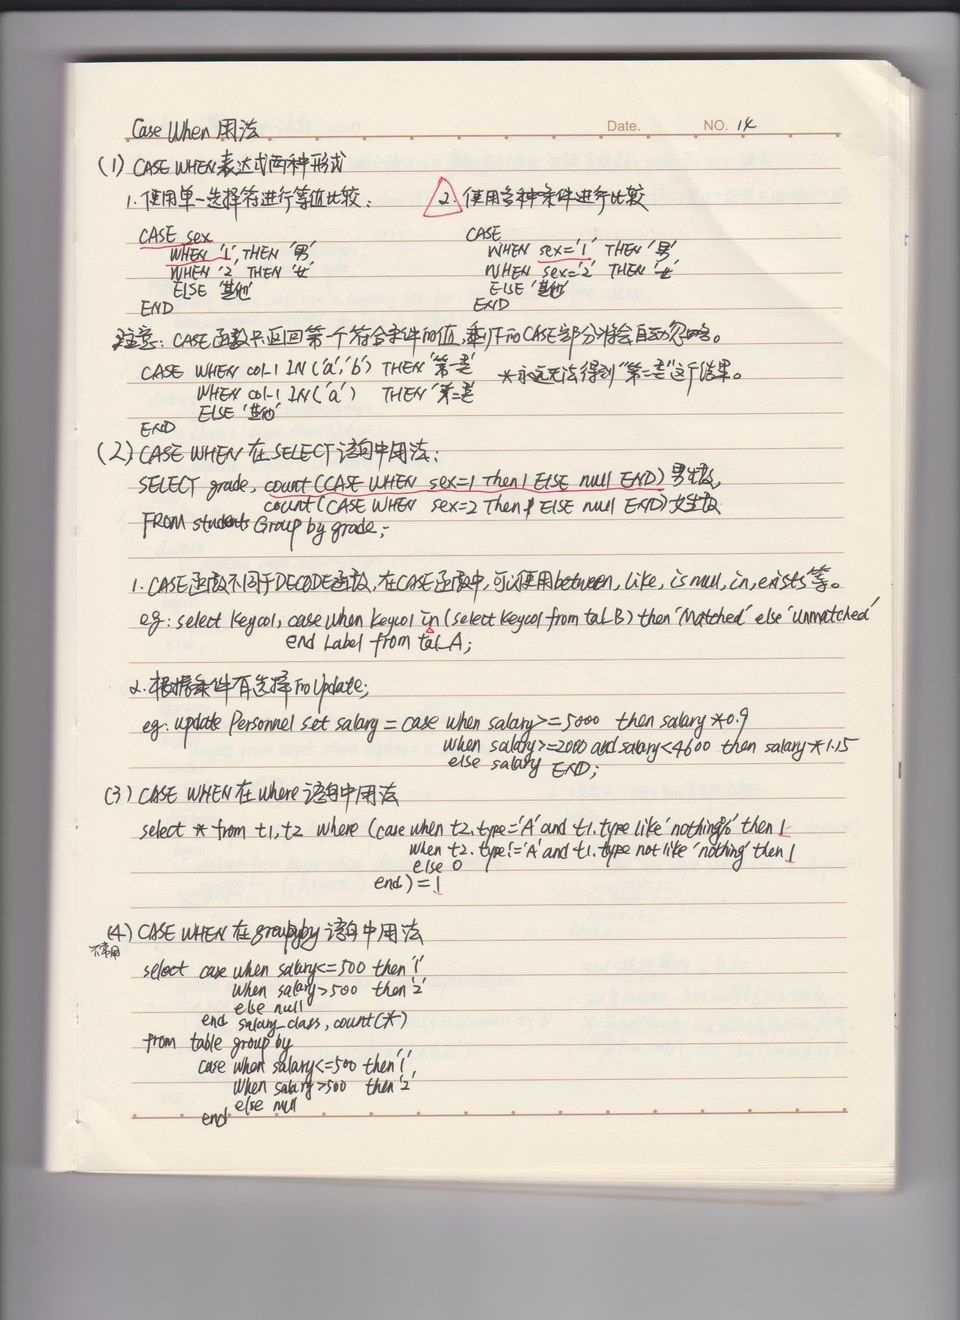 Case When 用法
Date. NO. 14
(1) CASE WHEN表达式两种形式
1.使用单一选择符进行等值比较: 2. 使用多种条件进行比较
CASE sex CASE
WHEN '1', THEN '男' WHEN sex='1' THEN '男'
WHEN '2' THEN '女' WHEN sex='2' THEN '女'
ELSE '其他' ELSE '其他'
END END
注意: CASE函数只返回第一个符合条件的值,剩下的CASE部分将会自动忽略。
CASE WHEN col-1 IN('a','b') THEN '第一类' *永远无法得到"第二类"这个结果。
WHEN col-1 IN('a') THEN '第二类'
ELSE '其他'
END
(2) CASE WHEN 在 SELECT 语句中用法:
SELECT grade, count(CASE WHEN sex=1 Then 1 ELSE null END) 男生数,
count(CASE WHEN sex=2 Then 1 ELSE null END) 女生数
FROM students Group by grade;
1. CASE函数不同于DECODE函数,在CASE函数中,可以使用between, like, is null, in, exists等。
eg: select keycol, case when keycol in (select keycol from tal_B) then 'Matched' else 'unmatched'
end Label from tal_A;
2.根据条件有选择的Update;
eg: update Personnel set salary = case when salary>=5000 then salary*0.9
when salary>=2000 and salary<4600 then salary*1.15
else salary END;
(3) CASE WHEN 在where语句中用法
select * from t1,t2 where (case when t2.type='A' and t1.type like 'nothing%' then 1
when t2.type!='A' and t1.type not like 'nothing' then 1
else 0
end)=1
(4) CASE WHEN 在group by 语句中用法
不常用
select case when salary<=500 then '1'
when salary>500 then '2'
else null
end salary_class, count(*)
from table group by
case when salary<=500 then '1',
when salary>500 then '2'
else null
end